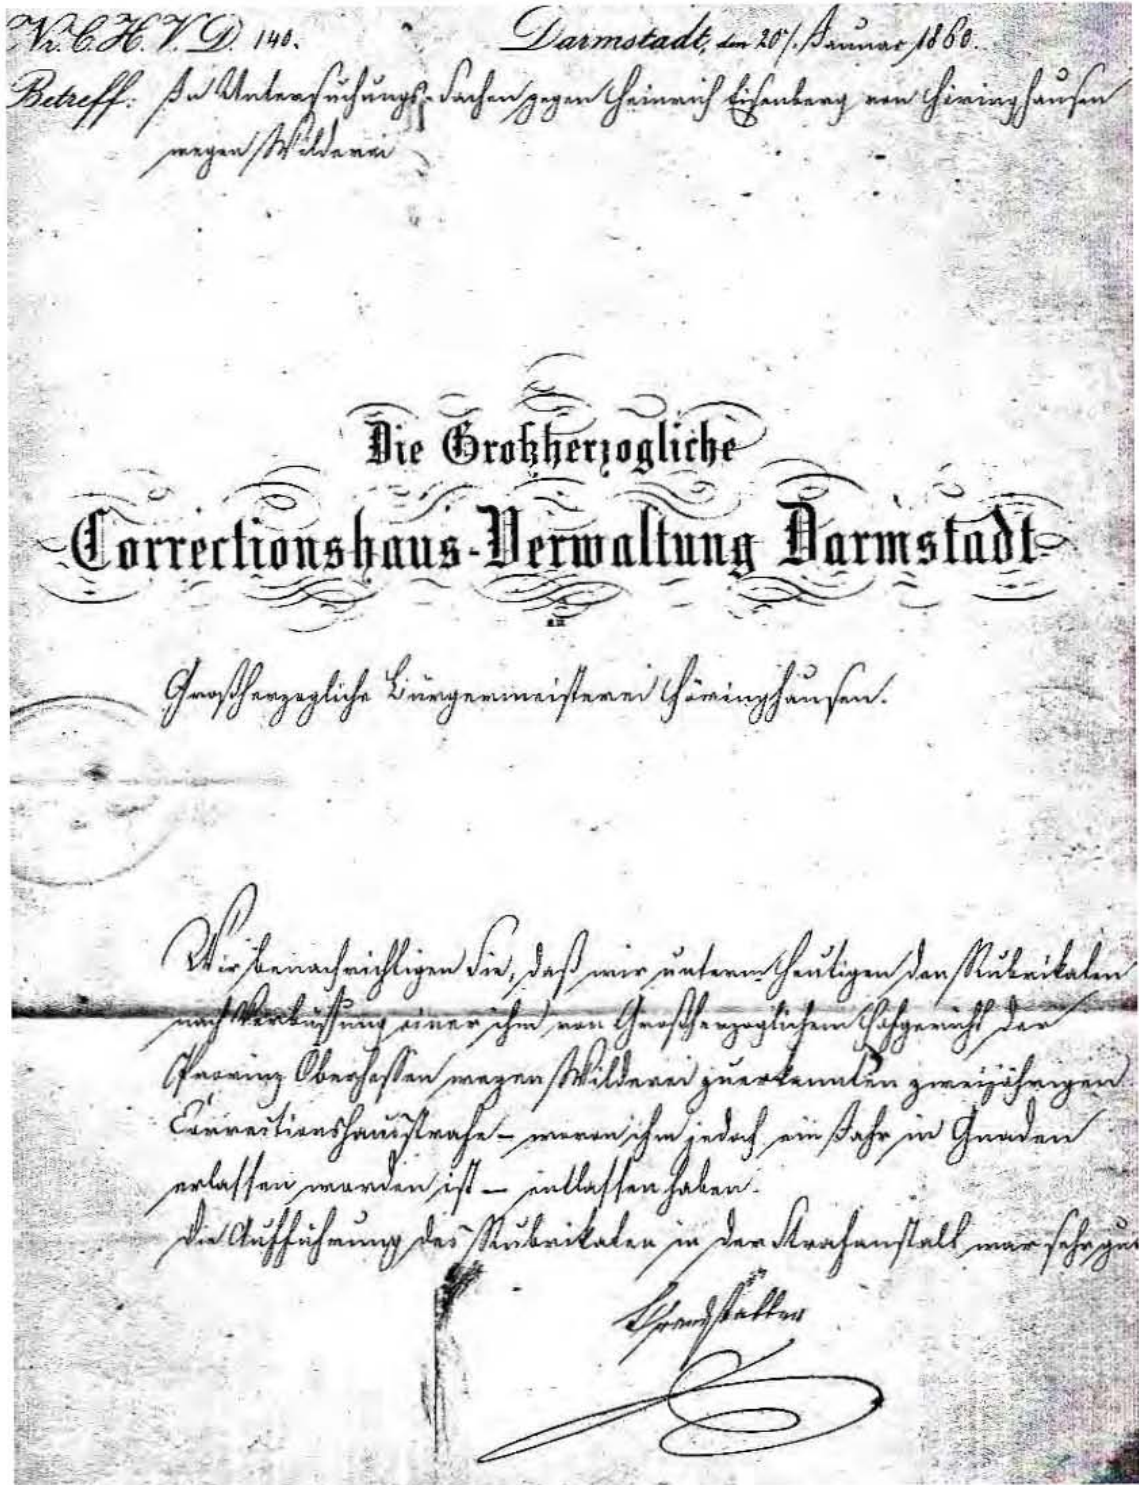 Nr. C. H. V. D. 140.
Darmstadt, den 20t. Januar 1860.
Betreff: In Untersuchungs-Sachen gegen Heinrich Eisenberg von Höringhausen
wegen Wilderei
Die Großherzogliche
Correctionshaus-Verwaltung Darmstadt
an
Großherzogliche Bürgermeisterei Höringhausen.
Wir benachrichtigen Sie, daß wir unterm Heutigen den Rubrikaten
nach Verbüßung einer ihm von Großherzoglichem Hofgericht der
Provinz Oberhessen wegen Wilderei zuerkannten zweijährigen
Correctionshausstrafe – wovon ihm jedoch ein Jahr in Gnaden
erlassen worden ist – entlassen haben.
Die Aufführung des Rubrikaten in der Strafanstalt war sehr gut